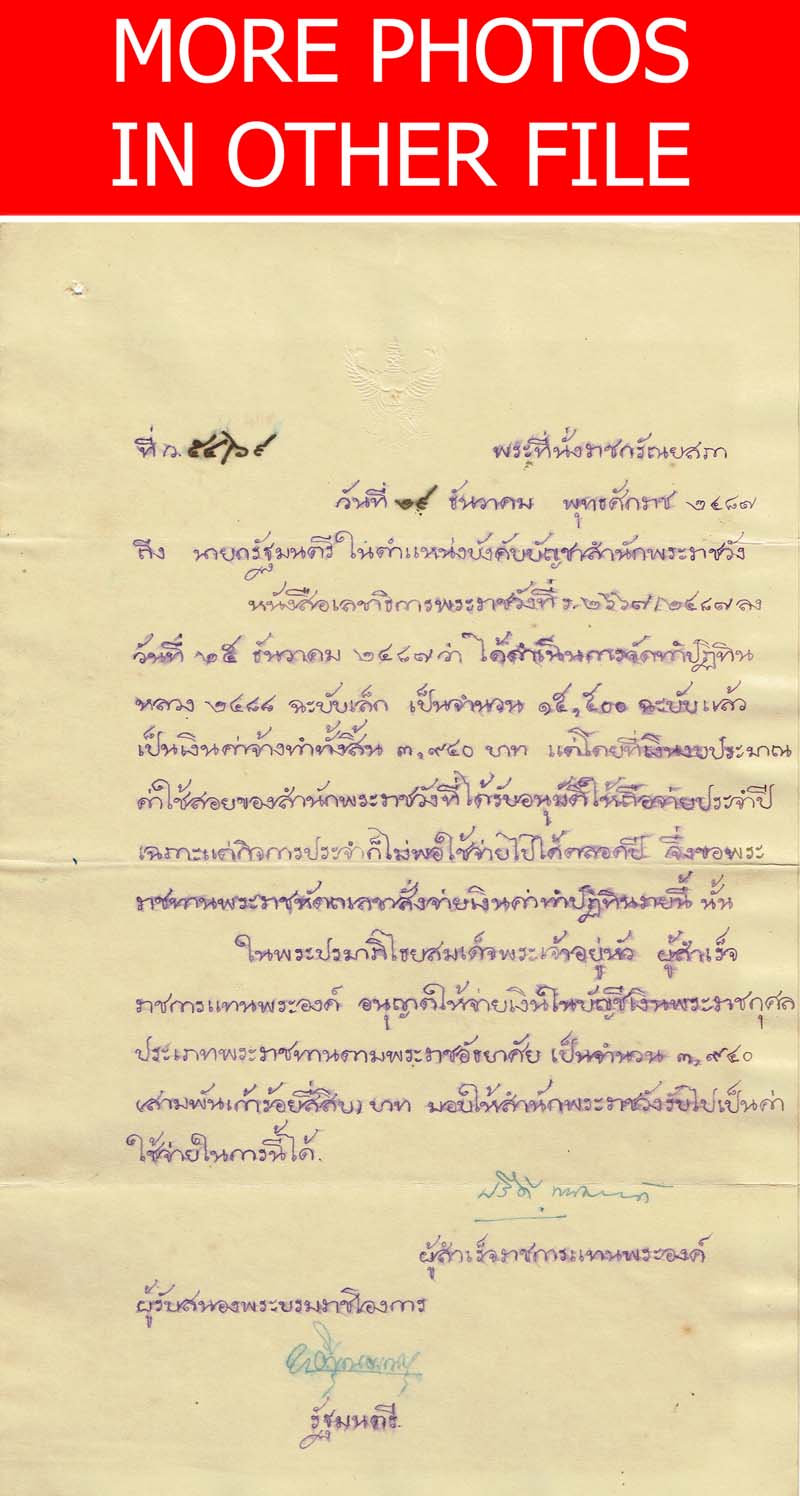 MORE PHOTOS
IN OTHER FILE
ที่ ว. ๕๔/๖๙
พระที่นั่งราชกรัณยสภา
วันที่ ๑๙ ธันวาคม พุทธศักราช ๒๔๘๗
ถึง นายกรัฐมนตรี ในตำแหน่งบังคับบัญชาสำนักพระราชวัง
หนังสือเลขาธิการพระราชวังที่ ร. ๒๕๖๗/๒๔๘๗ ลง
วันที่ ๑๕ ธันวาคม ๒๔๘๗ ว่า ได้ดำเนินการจัดทำปฏิทิน
หลวง ๒๔๘๘ ฉะบับเล็ก เป็นจำนวน ๑๕,๕๐๐ ฉะบับแล้ว
เป็นเงินค่าจ้างทำทั้งสิ้น ๓,๙๔๐ บาท แต่โดยที่เงินงบประมาณ
ค่าใช้สอยของสำนักพระราชวังที่ได้รับอนุมัติให้ถือจ่ายประจำปี
เฉพาะแต่กิจการประจำก็ไม่พอใช้จ่ายไปได้ตลอดปี จึ่งขอพระ
ราชทานพระราชหัตถเลขาสั่งจ่ายเงินค่าทำปฏิทินรายนี้ นั้น
ในพระปรมาภิไธยสมเด็จพระเจ้าอยู่หัว ผู้สำเร็จ
ราชการแทนพระองค์ อนุญาตให้จ่ายเงินในบัญชีเงินพระราชกุศล
ประเภทพระราชทานตามพระราชอัธยาศัย เป็นจำนวน ๓,๙๔๐
(สามพันเก้าร้อยสี่สิบ) บาท มอบให้สำนักพระราชวังรับไปเป็นค่า
ใช้จ่ายในการนี้ได้.
ปรีดี พนมยงค์
ผู้สำเร็จราชการแทนพระองค์
ผู้รับสนองพระบรมราชโองการ
รัฐมนตรี.